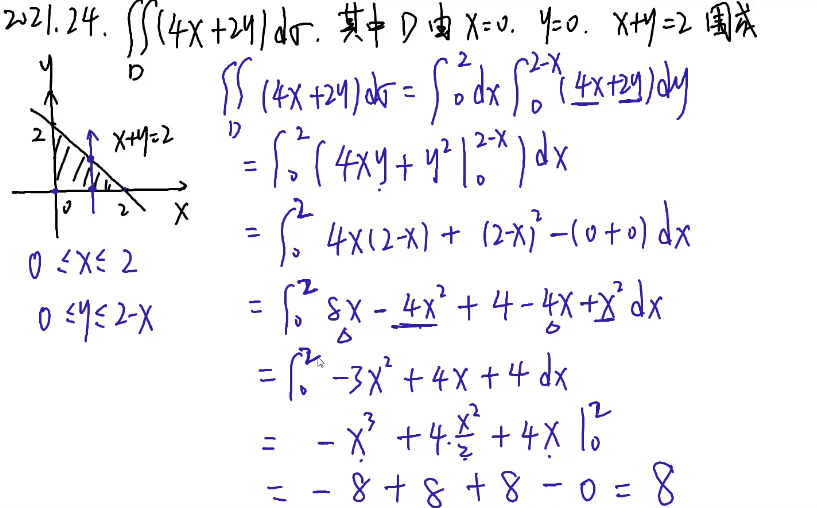 2021.24. ∬_D (4x+2y)dσ. 其中 D 由 x=0. y=0. x+y=2 围成
y
2
x+y=2
0
2
x
0 ≤ x ≤ 2
0 ≤ y ≤ 2-x
∬_D (4x+2y)dσ = ∫_0^2 dx ∫_0^{2-x} (4x+2y)dy
= ∫_0^2 (4xy + y² |_0^{2-x}) dx
= ∫_0^2 4x(2-x) + (2-x)² - (0+0) dx
= ∫_0^2 8x - 4x² + 4 - 4x + x² dx
= ∫_0^2 -3x² + 4x + 4 dx
= -x³ + 4·x²/2 + 4x |_0^2
= -8 + 8 + 8 - 0 = 8